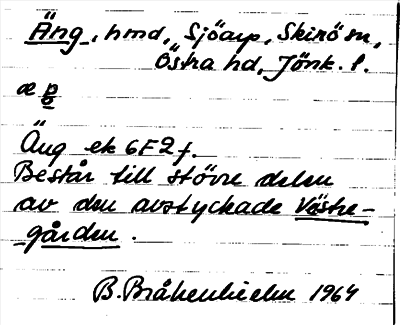 Äng, hmd, Sjöarp, Skirö sn,
Östra hd, Jönk. l.
Äng ek 6F2f.
Består till större delen
av den avstyckade Västre-
gården.
B. Bråkenhielm 1964